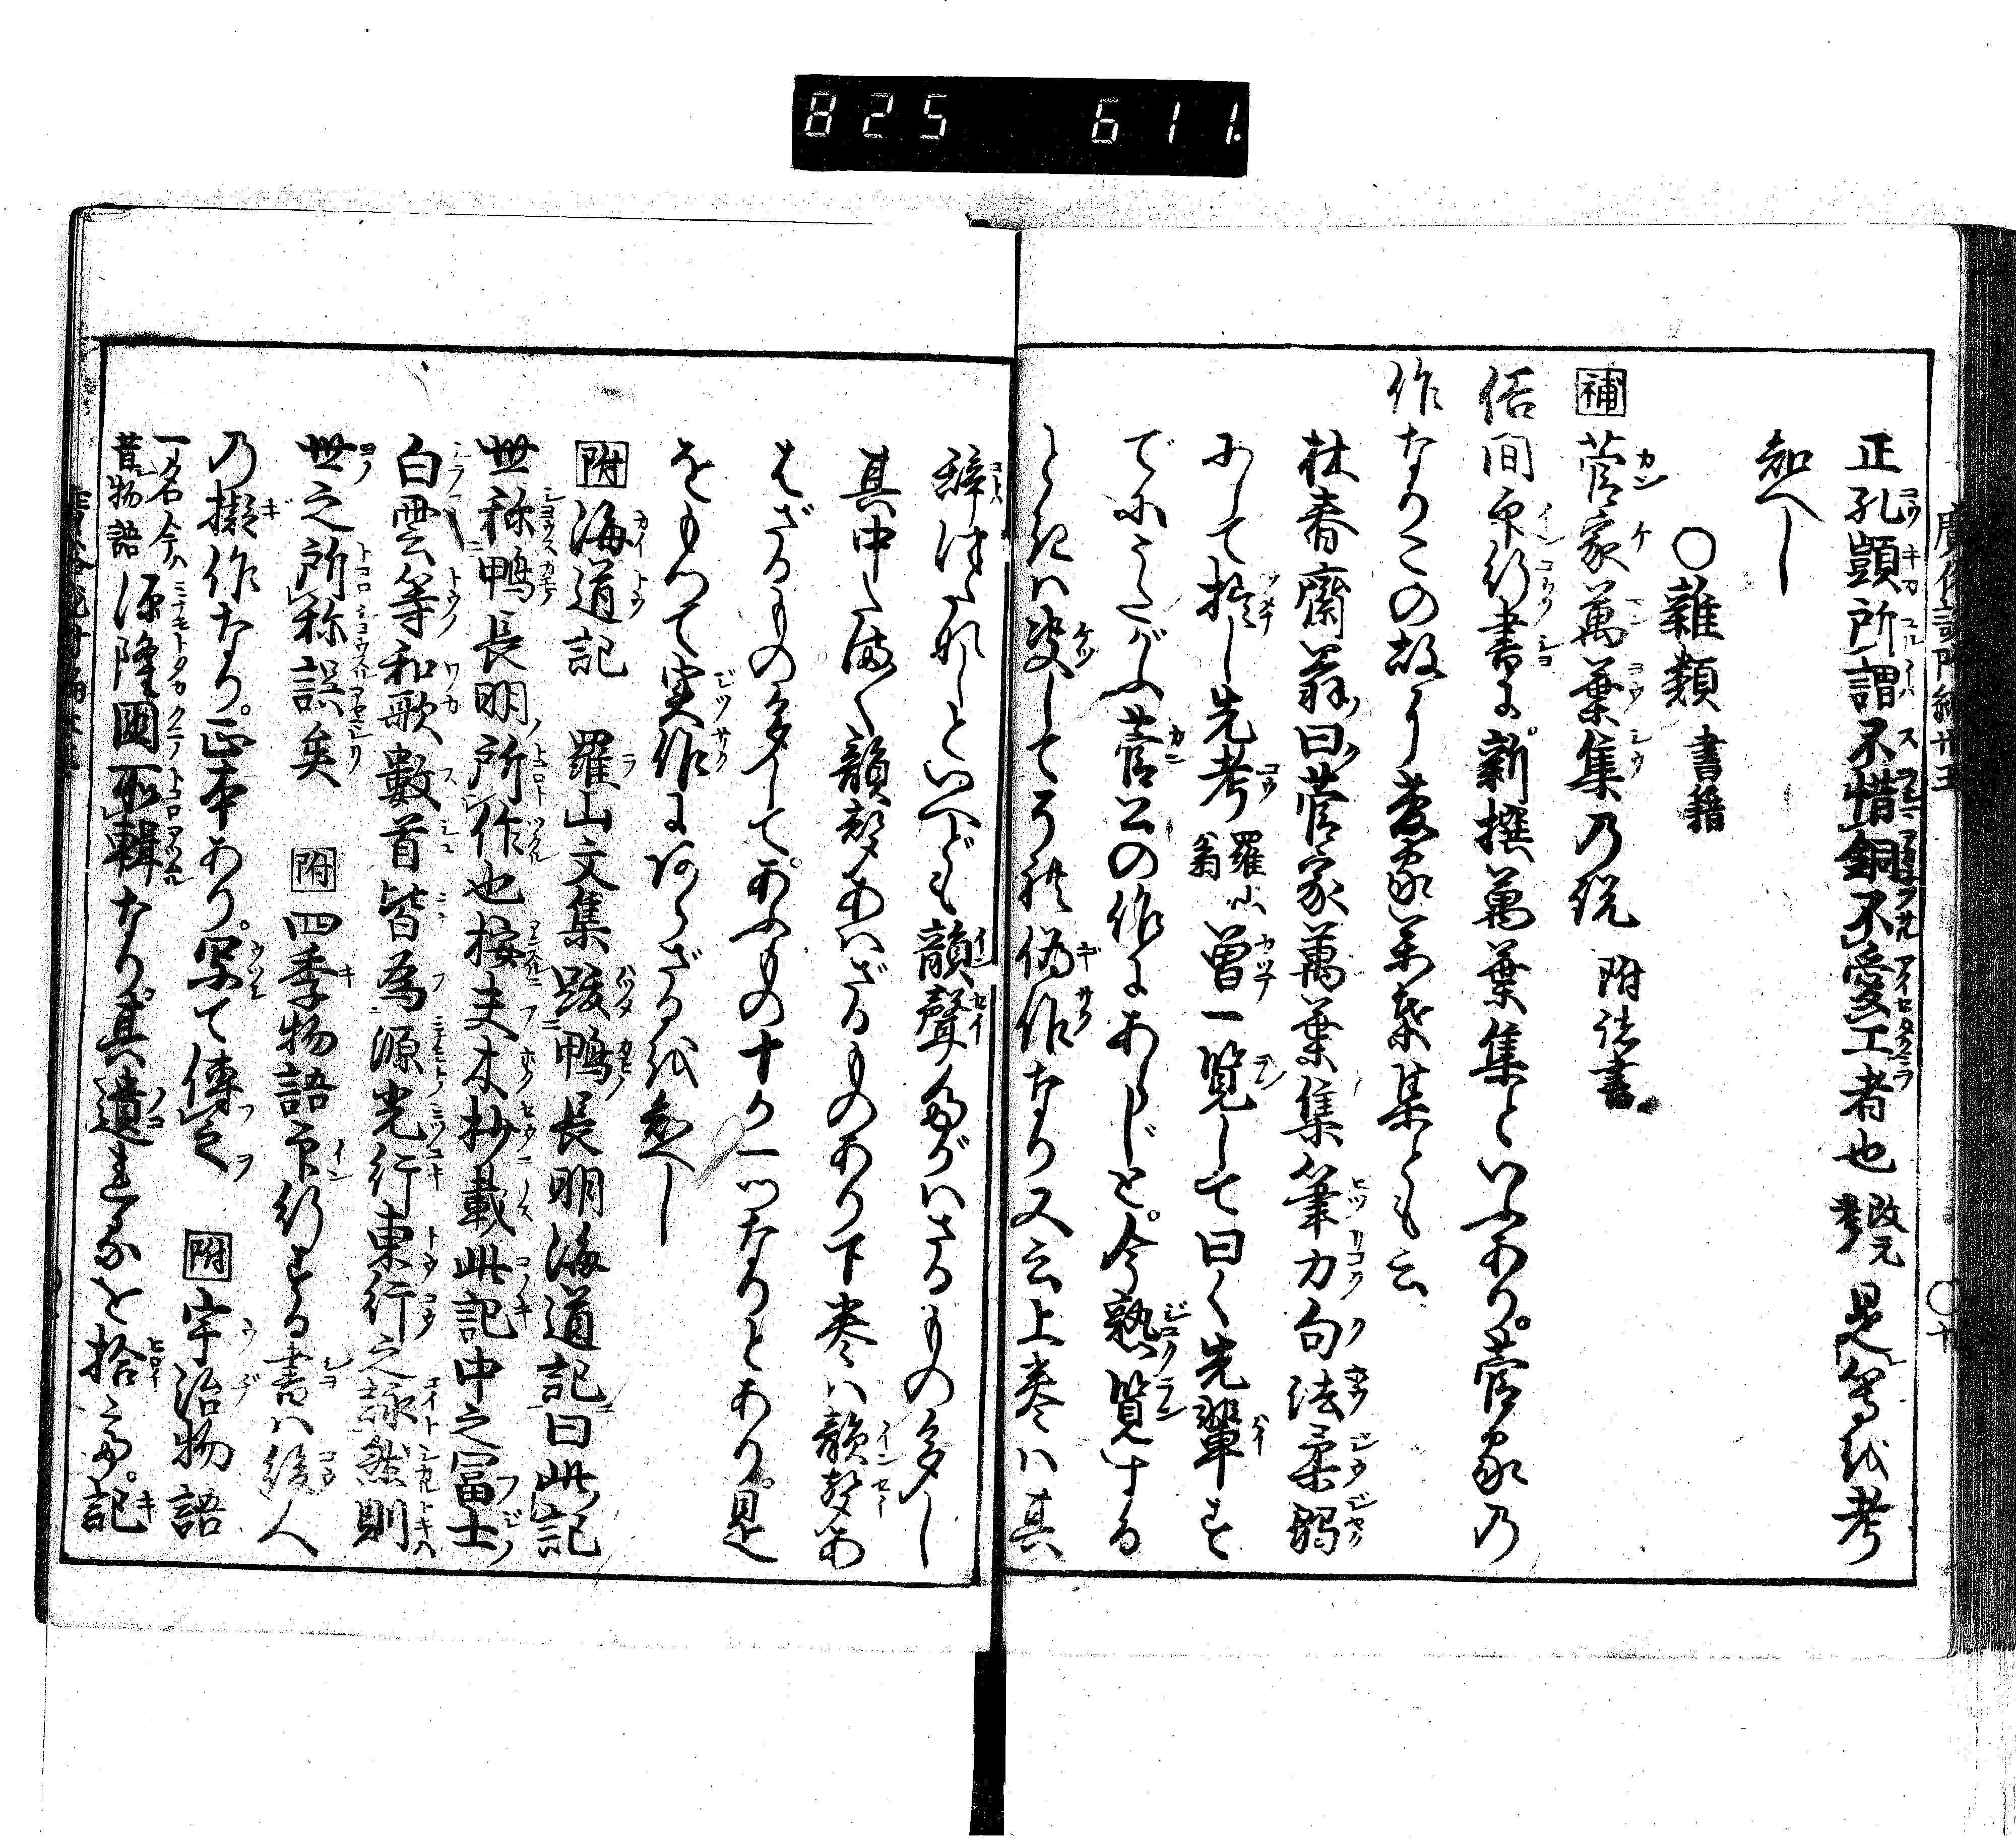 825 611
正孔顗所謂不惜銅不愛工者也 改元考 是等を考
知へし
○雜類 書籍
補 菅家萬葉集の説 附諸書
俗間印行書に新撰萬葉集といふあり。菅家の
作なりこの故に菅家萬葉集とも云
林春齋翁曰菅家萬葉集筆力句法柔弱
にして拙し先考 羅山翁 曾一覧して曰く先輩す
でにうたがふ菅公の作にあらじと。今熟覧する
ときハ决して偽作なり又云上巻ハ其
辭つたなしといへども韻聲たがハさるもの多し
其中たま〱韻聲あハざるものあり下巻ハ韻聲あ
はざるもの多して。あふもの十か一つなりとあり。是
をもつて実作にあらざるを知へし
附 海道記 羅山文集跋鴨長明海道記曰此記
世称鴨長明所作也按夫木抄載此記中之冨士
白雲等和歌數首皆為源光行東行之詠然則
世之所称誤矣 附 四季物語印行する書ハ後人
の擬作なり。正本あり。写て傳之 附 宇治物語
一名今ハ昔物語 源隆國所輯なり。其遺れるを拾ふ。記